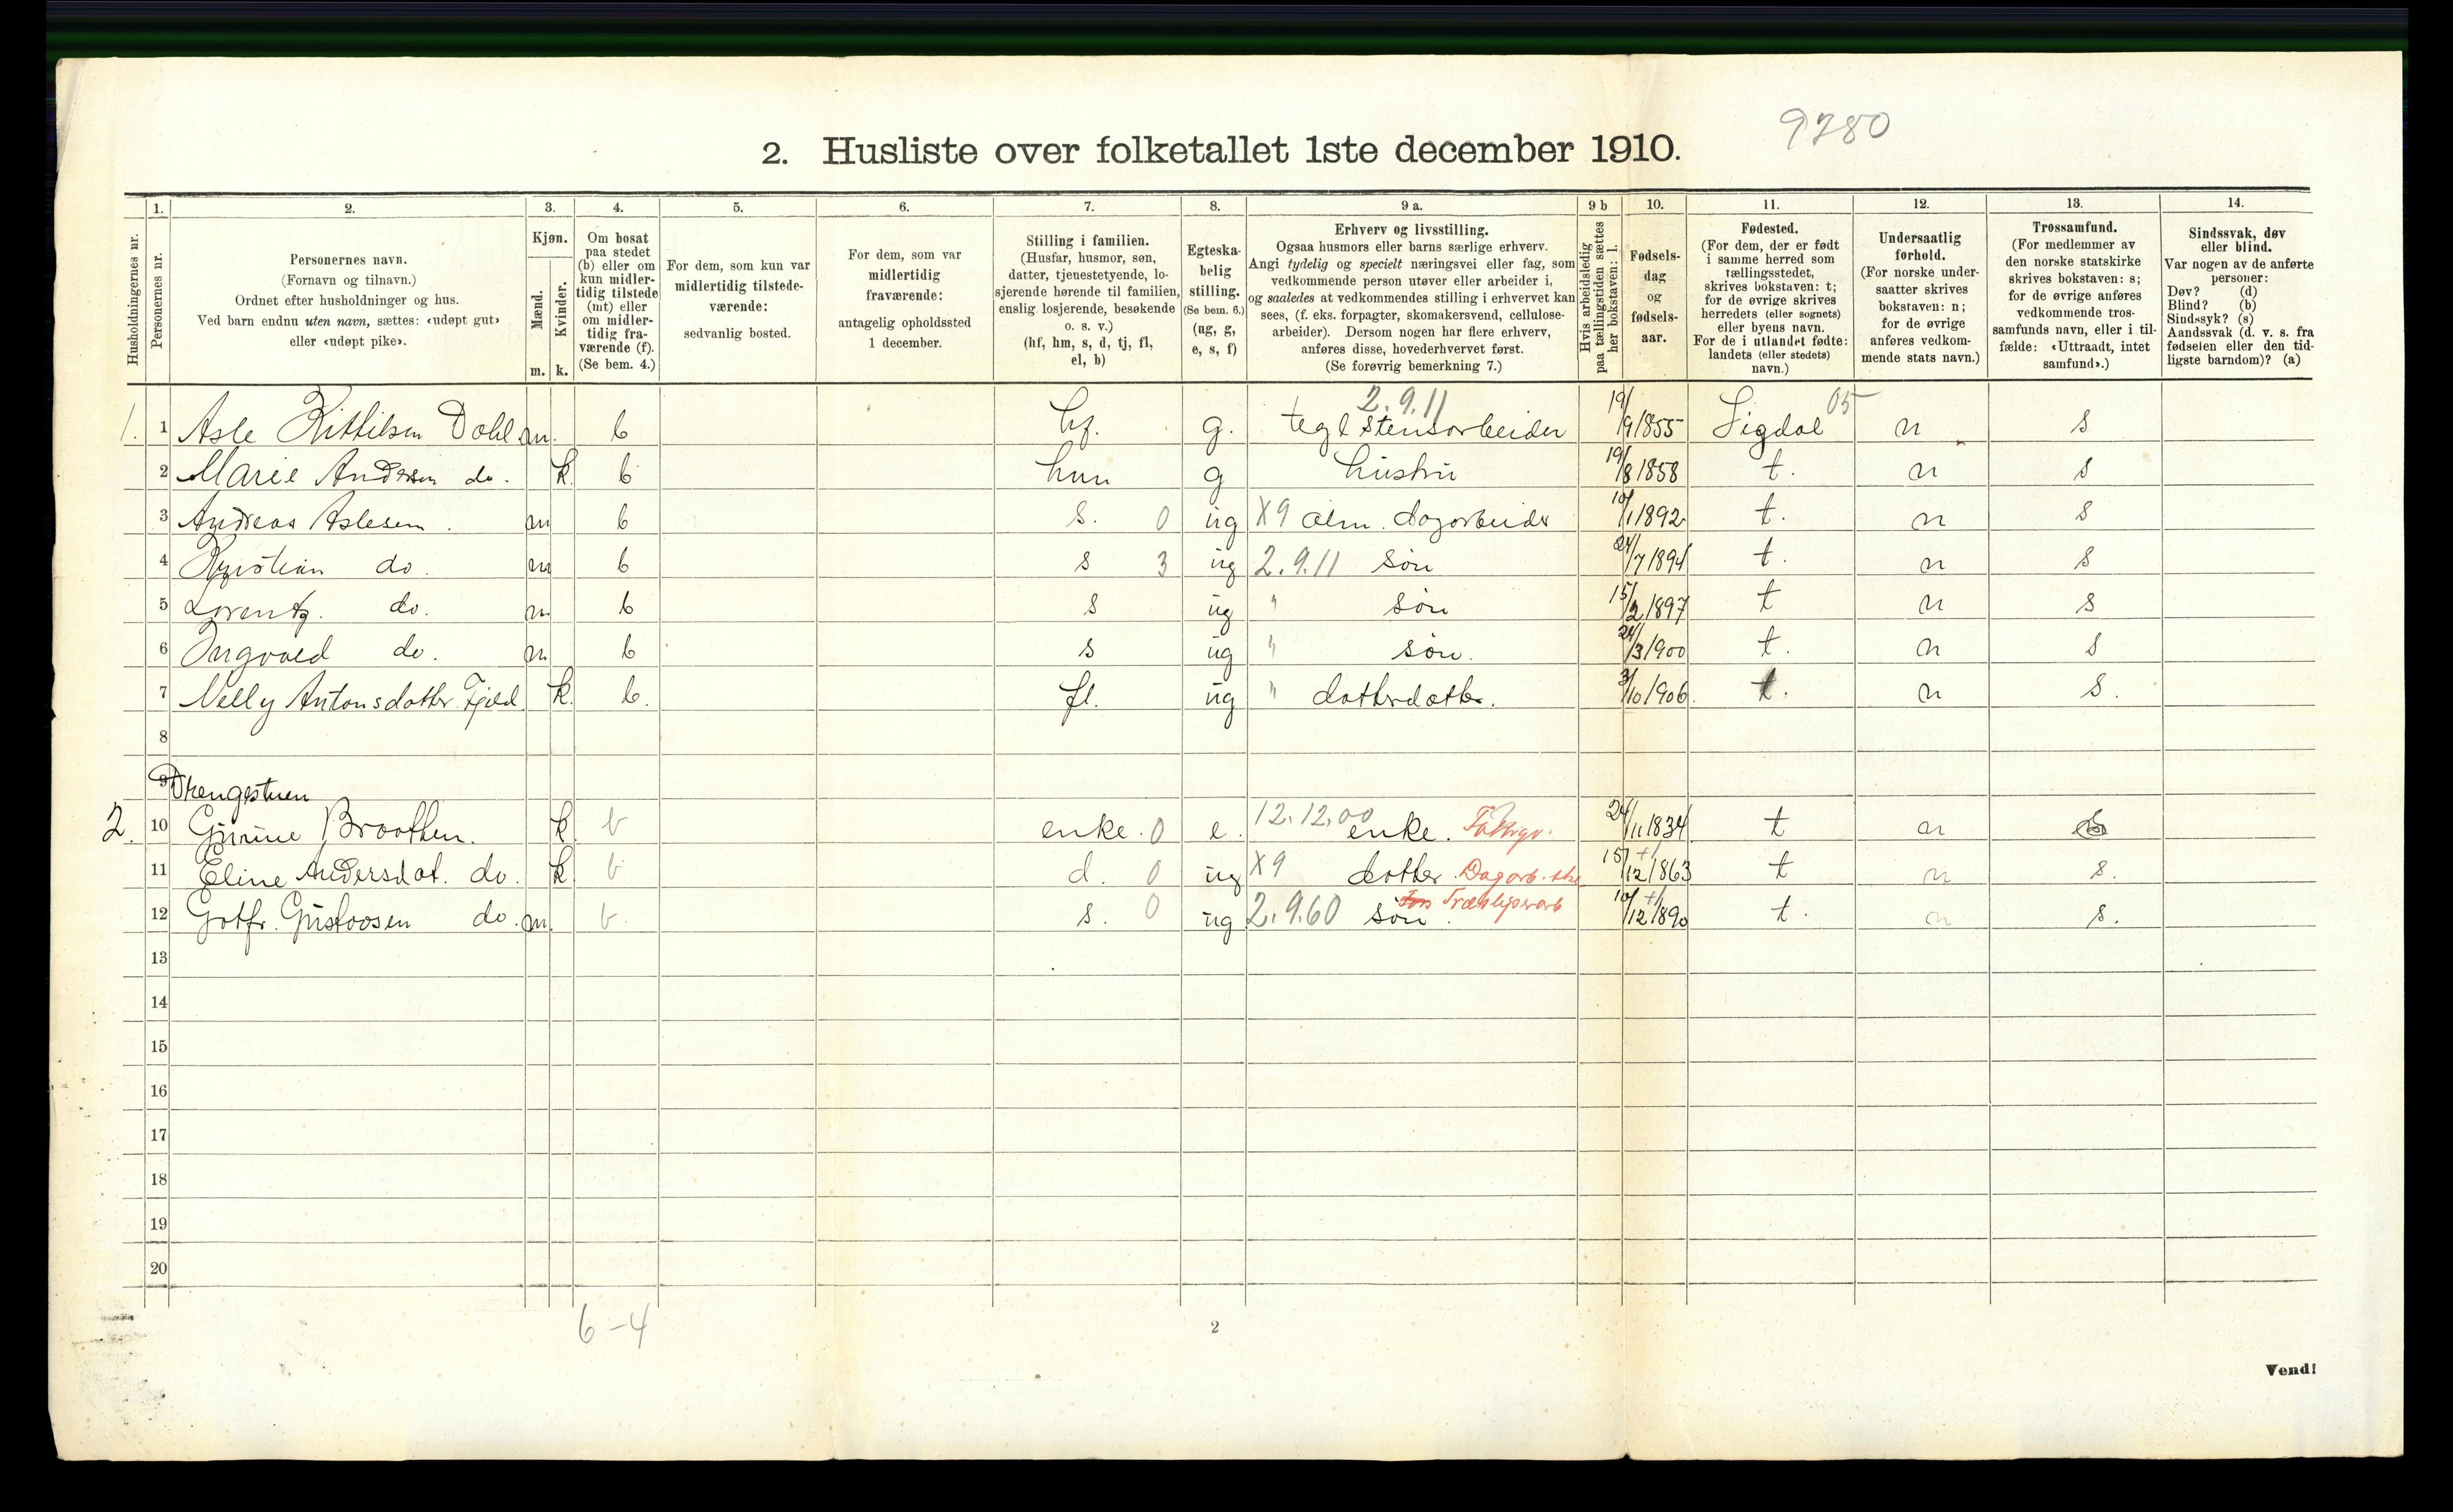 9280
2. Husliste over folketallet 1ste december 1910.
Husholdningernes nr.
1. Personernes nr.
2. Personernes navn. (Fornavn og tilnavn.) Ordnet efter husholdninger og hus. Ved barn endnu uten navn, sættes: «udøpt gut» eller «udøpt pike».
3. Kjøn. Mænd. m. Kvinder. k.
4. Om bosat paa stedet (b) eller om kun midlertidig tilstede (mt) eller om midlertidig fraværende (f). (Se bem. 4.)
5. For dem, som kun var midlertidig tilstedeværende: sedvanlig bosted.
6. For dem, som var midlertidig fraværende: antagelig opholdssted 1 december.
7. Stilling i familien. (Husfar, husmor, søn, datter, tjenestetyende, losjerende hørende til familien, enslig losjerende, besøkende o. s. v.) (hf, hm, s, d, tj, fl, el, b)
8. Egteskabelig stilling. (Se bem. 6.) (ug, g, e, s, f)
9 a. Erhverv og livsstilling. Ogsaa husmors eller barns særlige erhverv. Angi tydelig og specielt næringsvei eller fag, som vedkommende person utøver eller arbeider i, og saaledes at vedkommendes stilling i erhvervet kan sees, (f. eks. forpagter, skomakersvend, cellulosearbeider). Dersom nogen har flere erhverv, anføres disse, hovederhvervet først. (Se forøvrig bemerkning 7.)
9 b Hvis arbeidsledig paa tællingstiden sættes her bokstaven: l.
10. Fødselsdag og fødselsaar.
11. Fødested. (For dem, der er født i samme herred som tællingsstedet, skrives bokstaven: t; for de øvrige skrives herredets (eller sognets) eller byens navn. For de i utlandet fødte: landets (eller stedets) navn.)
12. Undersaatlig forhold. (For norske undersaatter skrives bokstaven: n; for de øvrige anføres vedkommende stats navn.)
13. Trossamfund. (For medlemmer av den norske statskirke skrives bokstaven: s; for de øvrige anføres vedkommende trossamfunds navn, eller i tilfælde: «Uttraadt, intet samfund».)
14. Sindssvak, døv eller blind. Var nogen av de anførte personer: Døv? (d) Blind? (b) Sindssyk? (s) Aandssvak (d. v. s. fra fødselen eller den tidligste barndom)? (a)
1. 1 Asle Kittilsen Dahl m. b hf. g. 2.9.11 teglstensarbeider 19/9 1855 Sigdal 05 n s
2 Marie Andersen do. k b hun g hustru 19/8 1858 t. n s
3 Andreas Aslesen. m b s. 0 ug X9 alm. dagarbeider 10/1 1892 t. n s
4 Kristian do. m b s 3 ug 2.9.11 søn 24/7 1894 t. n s
5 Lorentz. do. m b s ug " søn 15/2 1897 t n s
6 Ingvald do. m b s ug " søn. 24/3 1900 t. n s
7 Nelly Antonsdatter Fjeld. k b. fl. ug " datterdatter. 3/10 1906. t. n s.
8
9 Drengestuen
2. 10 Gurine Braathen. k b enke. 0 e. 12.12.00 enke. Fattigu. 24/11 1834 t n
11 Eline Andersdat. do. k b d. 0 ug X9 datter. Dagarb. 15/12 1863 t n s.
12 Gotfr. Gustavsen do. m. b s. 0 ug 2.9.60 søn. Træsliperarb 10/12 1890 t. n s.
13
14
15
16
17
18
19
20
6-4
2
Vend!